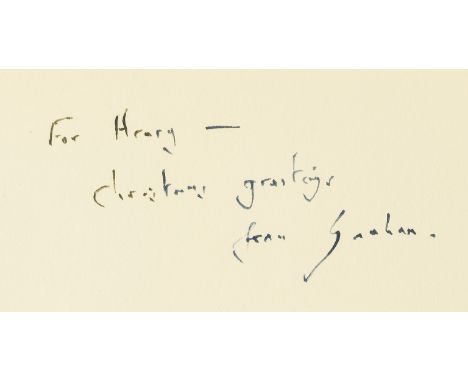 For Henry —
Christmas greetings
from Graham.